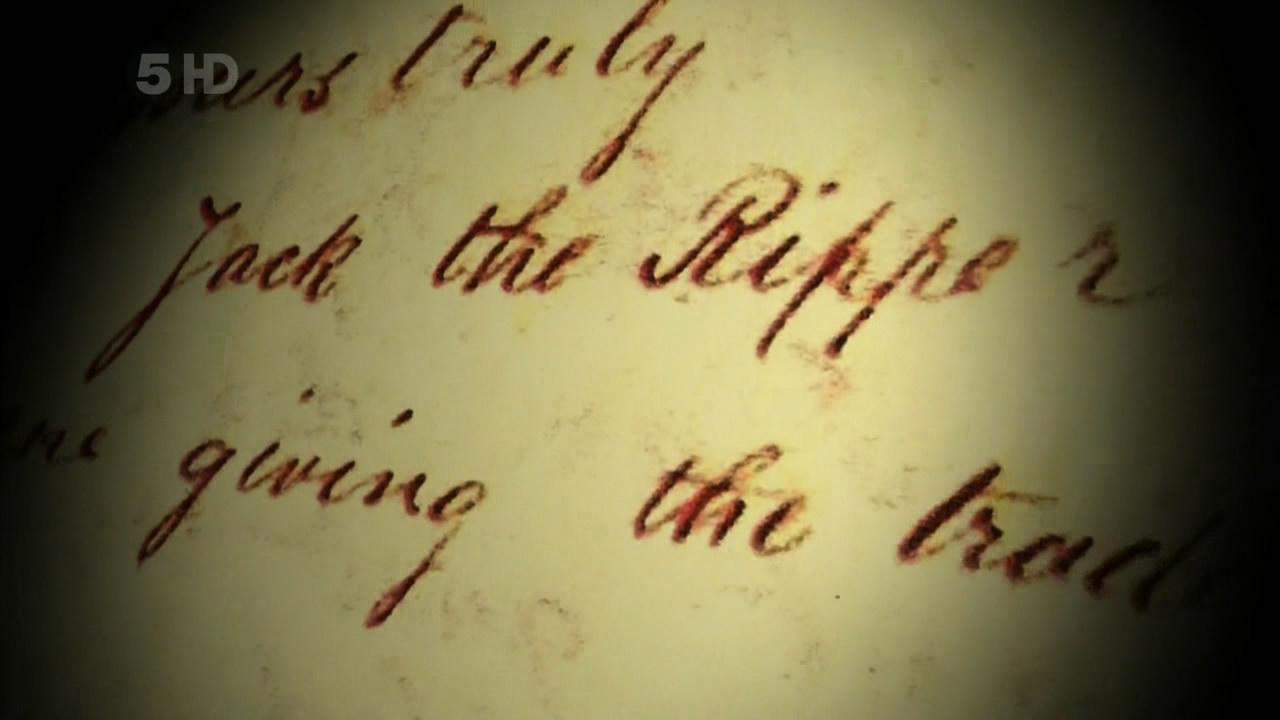 5 HD
urs truly
Jack the Ripper
giving the trad